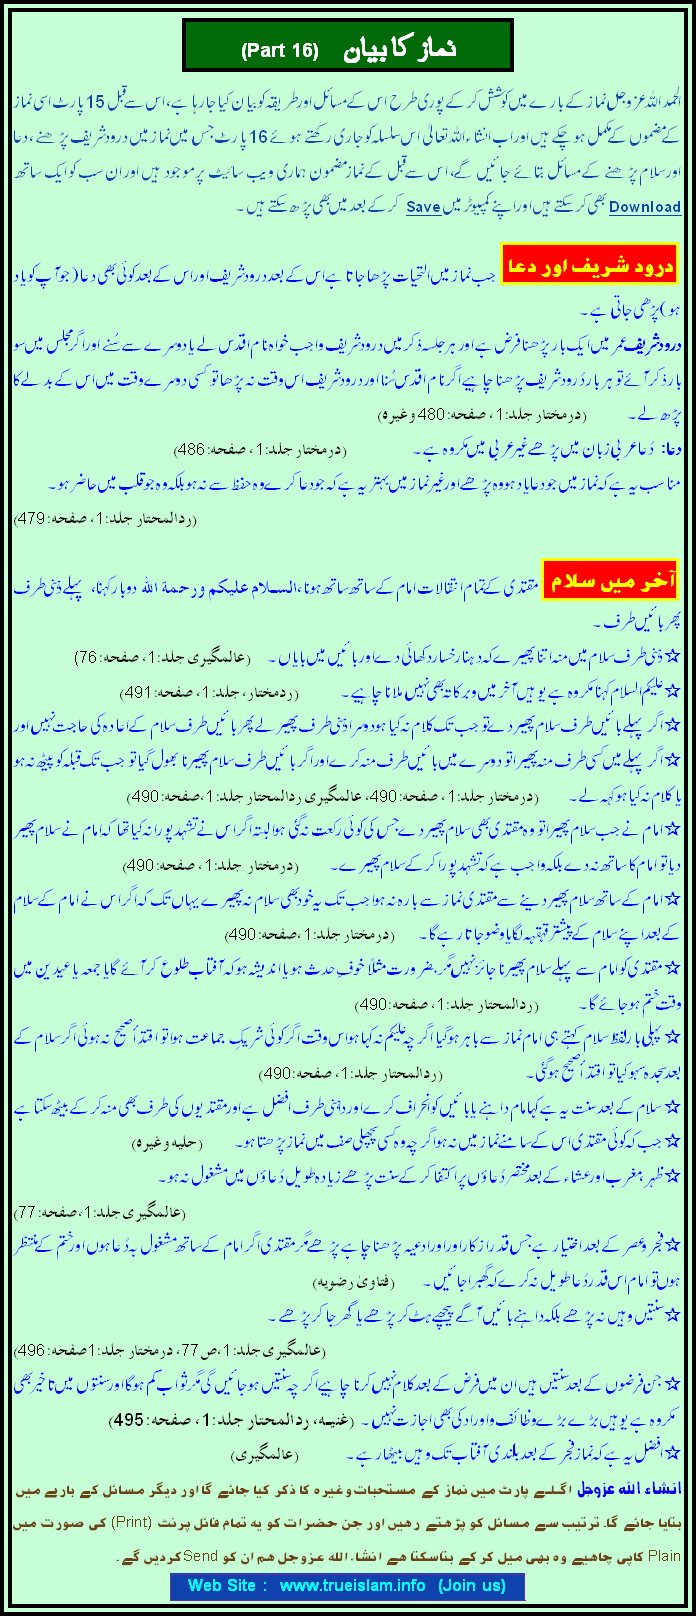 نماز کا بیان (Part 16)
الحمد اللہ عزوجل نماز کے بارے میں کوشش کر کے پوری طرح اس کے مسائل اور طریقہ کو بیان کیا جا رہا ہے، اس سے قبل 15 پارٹ اسی نماز
کے مضموں کے مکمل ہو چکے ہیں اور اب انشاء اللہ تعالیٰ اس سلسلہ کو جاری رکھتے ہوئے 16 پارٹ جس میں نماز میں درود شریف پڑھنے، دعا
اور سلام پڑھنے کے مسائل بتائے جائیں گے، اس سے قبل کے نماز مضمون ہماری ویب سائیٹ پر موجود ہیں اور ان سب کو ایک ساتھ
Download بھی کر سکتے ہیں اور اپنے کمپیوٹر میں Save کر کے بعد میں بھی پڑھ سکتے ہیں ۔
درود شریف اور دعا جب نماز میں التحیات پڑھا جاتا ہے اس کے بعد درود شریف اور اس کے بعد کوئی بھی دعا (جو آپ کو یاد
ہو) پڑھی جاتی ہے ۔
درود شریف عمر میں ایک بار پڑھنا فرض ہے اور ہر جلسہ ذکر میں درود شریف واجب خواہ نام اقدس لے یا دوسرے سے سُنے اور اگر مجلس میں سو
بار ذکر آئے تو ہر بار دُرود شریف پڑھنا چاہیے اگر نام اقدس سُنا اور درود شریف اس وقت نہ پڑھا تو کسی دوسرے وقت میں اس کے بدلے کا
پڑھ لے ۔ (درمختار جلد:1، صفحہ:480 وغیرہ)
دعا: دُعا عربی زبان میں پڑھے غیر عربی میں مکروہ ہے ۔ (درمختار جلد:1، صفحہ:486)
مناسب یہ ہے کہ نماز میں جو دعا یاد ہو وہ پڑھے اور غیر نماز میں بہتر یہ ہے کہ جو دعا کرے وہ حفظ سے نہ ہو بلکہ وہ جو قلب میں حاضر ہو۔
(ردالمحتار جلد:1، صفحہ:479)
آخر میں سلام مقتدی کے تمام انتقالات امام کے ساتھ ساتھ ہونا، السلام علیکم ورحمۃ اللہ دوبار کہنا، پہلے دہنی طرف
پھر بائیں طرف ۔
☆ دہنی طرف سلام میں منہ اتنا پھیرے کہ دہنا رخسار دکھائی دے اور بائیں میں بایاں ۔ (عالمگیری جلد:1، صفحہ:76)
☆ علیکم السلام کہنا مکروہ ہے یوہیں آخر میں وبرکاتہ بھی نہیں ملانا چاہیے ۔ (ردمختار، جلد:1، صفحہ:491)
☆ اگر پہلے بائیں طرف سلام پھیر دے تو جب تک کلام نہ کیا ہو دوسرا دہنی طرف پھیر لے پھر بائیں طرف سلام کے اعادہ کی حاجت نہیں اور
☆ اگر پہلے میں کسی طرف منہ پھیرا تو دوسرے میں بائیں طرف منہ کرے اور اگر بائیں طرف سلام پھیرنا بھول گیا تو جب تک قبلہ کو پیٹھ نہ ہو
یا کلام نہ کیا ہو کہہ لے ۔ (درمختار جلد:1، صفحہ:490، عالمگیری ردالمحتار جلد:1، صفحہ:490)
☆ امام نے جب سلام پھیرا تو وہ مقتدی بھی سلام پھیر دے جس کی کوئی رکعت نہ گئی ہو البتہ اگر اس نے تشہد پورا نہ کیا تھا کہ امام نے سلام پھیر
دیا تو امام کا ساتھ نہ دے بلکہ واجب ہے کہ تشہد پورا کر کے سلام پھیرے ۔ (درمختار جلد:1، صفحہ:490)
☆ امام کے ساتھ سلام پھیر دینے سے مقتدی نماز سے بارہ نہ ہوا جب تک یہ خود بھی سلام نہ پھیرے یہاں تک کہ اگر اس نے امام کے سلام
کے بعد اپنے سلام کے پیشتر قہقہہ لگایا وضو جاتا رہے گا ۔ (درمختار جلد:1، صفحہ:490)
☆ مقتدی کو امام سے پہلے سلام پھیرنا جائز نہیں مگر بضرورت مثلاً خوفِ حدث ہو یا اندیشہ ہو کہ آفتاب طلوع کر آئے گا یا جمعہ یا عیدین میں
وقت ختم ہو جائے گا ۔ (ردالمحتار جلد:1، صفحہ:490)
☆ پہلی بار لفظ سلام کہتے ہی امام نماز سے باہر ہو گیا اگرچہ علیکم نہ کہا ہو اس وقت اگر کوئی شریکِ جماعت ہوا تو اقتدأ صحیح نہ ہوئی اگر سلام کے
بعد سجدہ سہو کیا تو اقتدأ صحیح ہو گئی ۔ (ردالمحتار جلد:1، صفحہ:490)
☆ سلام کے بعد سنت یہ ہے کہ امام داہنے یا بائیں کو انحراف کرے اور داہنی طرف افضل ہے اور مقتدیوں کی طرف بھی منہ کر کے بیٹھ سکتا ہے
☆ جب کہ کوئی مقتدی اس کے سامنے نماز میں نہ ہو اگرچہ وہ کسی پچھلی صف میں نماز پڑھتا ہو۔ (حلیہ وغیرہ)
☆ ظہر، مغرب اور عشاء کے بعد مختصر دُعاؤں پر اکتفا کر کے سنت پڑھے زیادہ طویل دُعاؤں میں مشغول نہ ہو۔
(عالمگیری جلد:1، صفحہ:77)
☆ فجر و عصر کے بعد اختیار ہے جس قدر ازکار اوراور ادعیہ پڑھنا چاہے پڑھے مگر مقتدی اگر امام کے ساتھ مشغول بہ دُعا ہوں اور ختم کے منتظر
ہوں تو امام اس قدر دُعا طویل نہ کرے کہ گھبرا جائیں ۔ (فتاویٰ رضویہ)
☆ سنتیں وہیں نہ پڑھے بلکہ داہنے بائیں آگے پیچھے ہٹ کر پڑھے یا گھر جا کر پڑھے ۔
(عالمگیری جلد:1، ص77، درمختار جلد:1صفحہ:496)
☆ جن فرضوں کے بعد سنتیں ہیں ان میں فرض کے بعد کلام نہیں کرنا چاہیے اگرچہ سنتیں ہو جائیں گی مگر ثواب کم ہوگا اور سنتوں میں تاخیر بھی
مکروہ ہے یوہیں بڑے بڑے وظائف و اوراد کی بھی اجازت نہیں ۔ (غنیہ، ردالمحتار جلد:1، صفحہ:495)
☆ افضل یہ ہے کہ نماز فجر کے بعد بلندی آفتاب تک وہیں بیٹھا رہے ۔ (عالمگیری)
انشاء اللہ عزوجل اگلے پارٹ میں نماز کے مستحبات وغیرہ کا ذکر کیا جائے گا اور دیگر مسائل کے بارے میں
بتایا جائے گا۔ ترتیب سے مسائل کو پڑھتے رهیں اور جن حضرات کو یه تمام فائل پرنٹ (Print) کی صورت میں
Plain کاپی چاهیے وه بھی میل کر کے بتاسکتا هے انشاء الله عزوجل هم ان کو Send کردیں گے۔
Web Site : www.trueislam.info (Join us)